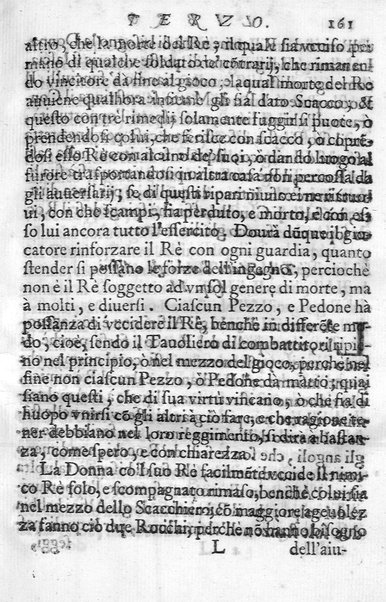 TERZO. 161
altro, che la morte del Rè; il quale sia ucciso per
mano di qualche soldato de' contrarij, che rimanen
do vincitore dà fine al gioco; la qual morte del Re
auuiene qualhora gli sia dato Scacco, &
questo con tre rimedij solamente fuggir si puote, ò
prendendosi colui, che ferisce con scacco, ò copren
dosi esso Rè con alcuno de' suoi, ò dando luogo al
furore trasportandosi in altra casa non percossa da
gli auuersarij; se di questi ripari niuno
ui, con che scampi, sia perduto, e morto, e con es-
so lui ancora tutto l'essercito. Dourà dũque il gio
catore rinforzare il Rè con ogni guardia, quanto
stender si possano le forze dell'ingegno, percioche
non è il Rè soggetto ad vn sol genere di morte, ma
à molti, e diuersi. Ciascun Pezzo, e Pedone hà
possanza di vccidere il Rè, benche in differẽte mo
do; cioè, sendo il Tauoliero di combattitori pie
no nel principio, ò nel mezzo del gioco, perche nel
fine non ciascun Pezzo, ò Pedone dà matto; quai
siano questi, che di sua virtù vincano, ò che fia di
huopo vnirsi cõ gli altri à ciò fare, e che ragione te
ner debbiano nel loro reggimento, si dirà à bastan
za, come spero, e con chiarezza.
La Donna co'l suo Rè facilmẽte vccide il nemi
co Rè solo, e scompagnato rimaso, benche colui sia
nel mezzo dello Scacchiero; cõ maggiore ageuolez
za fanno ciò due Rocchi, perche nõ hanno bisogno
L dell'aiu-